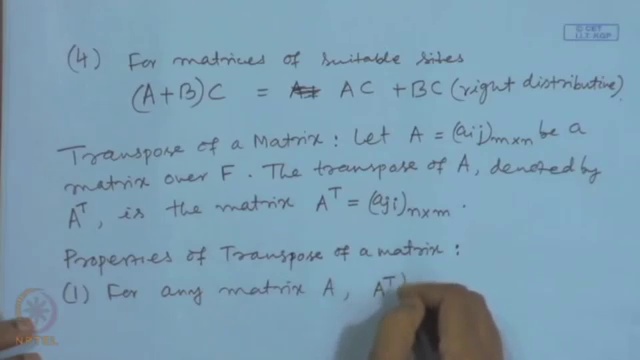 © CET
I.I.T. KGP
(4) For matrices of suitable sizes
(A+B)C = AC + BC (right distributive)
Transpose of a Matrix : Let A = (aij)m×n be a
matrix over F. The transpose of A, denoted by
A^T, is the matrix A^T = (aji)n×m.
Properties of Transpose of a matrix :
(1) For any matrix A, A^T)
NPTEL